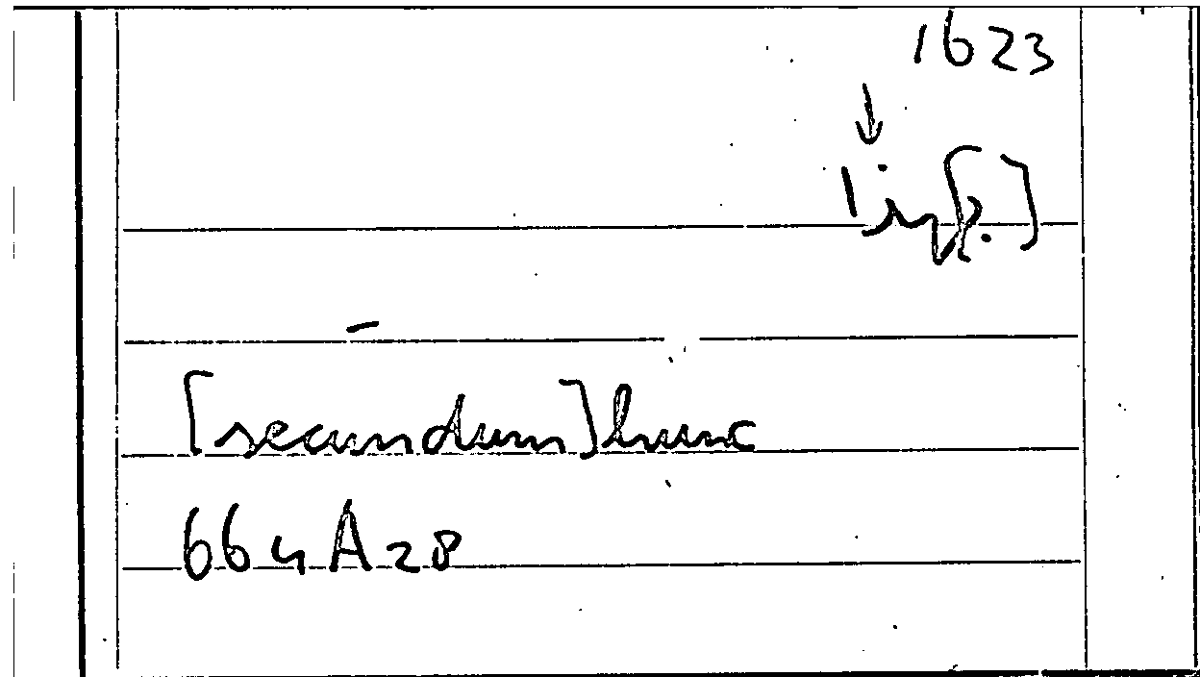 1623
↓
1 inf[.]
[secundum] hunc
664A28